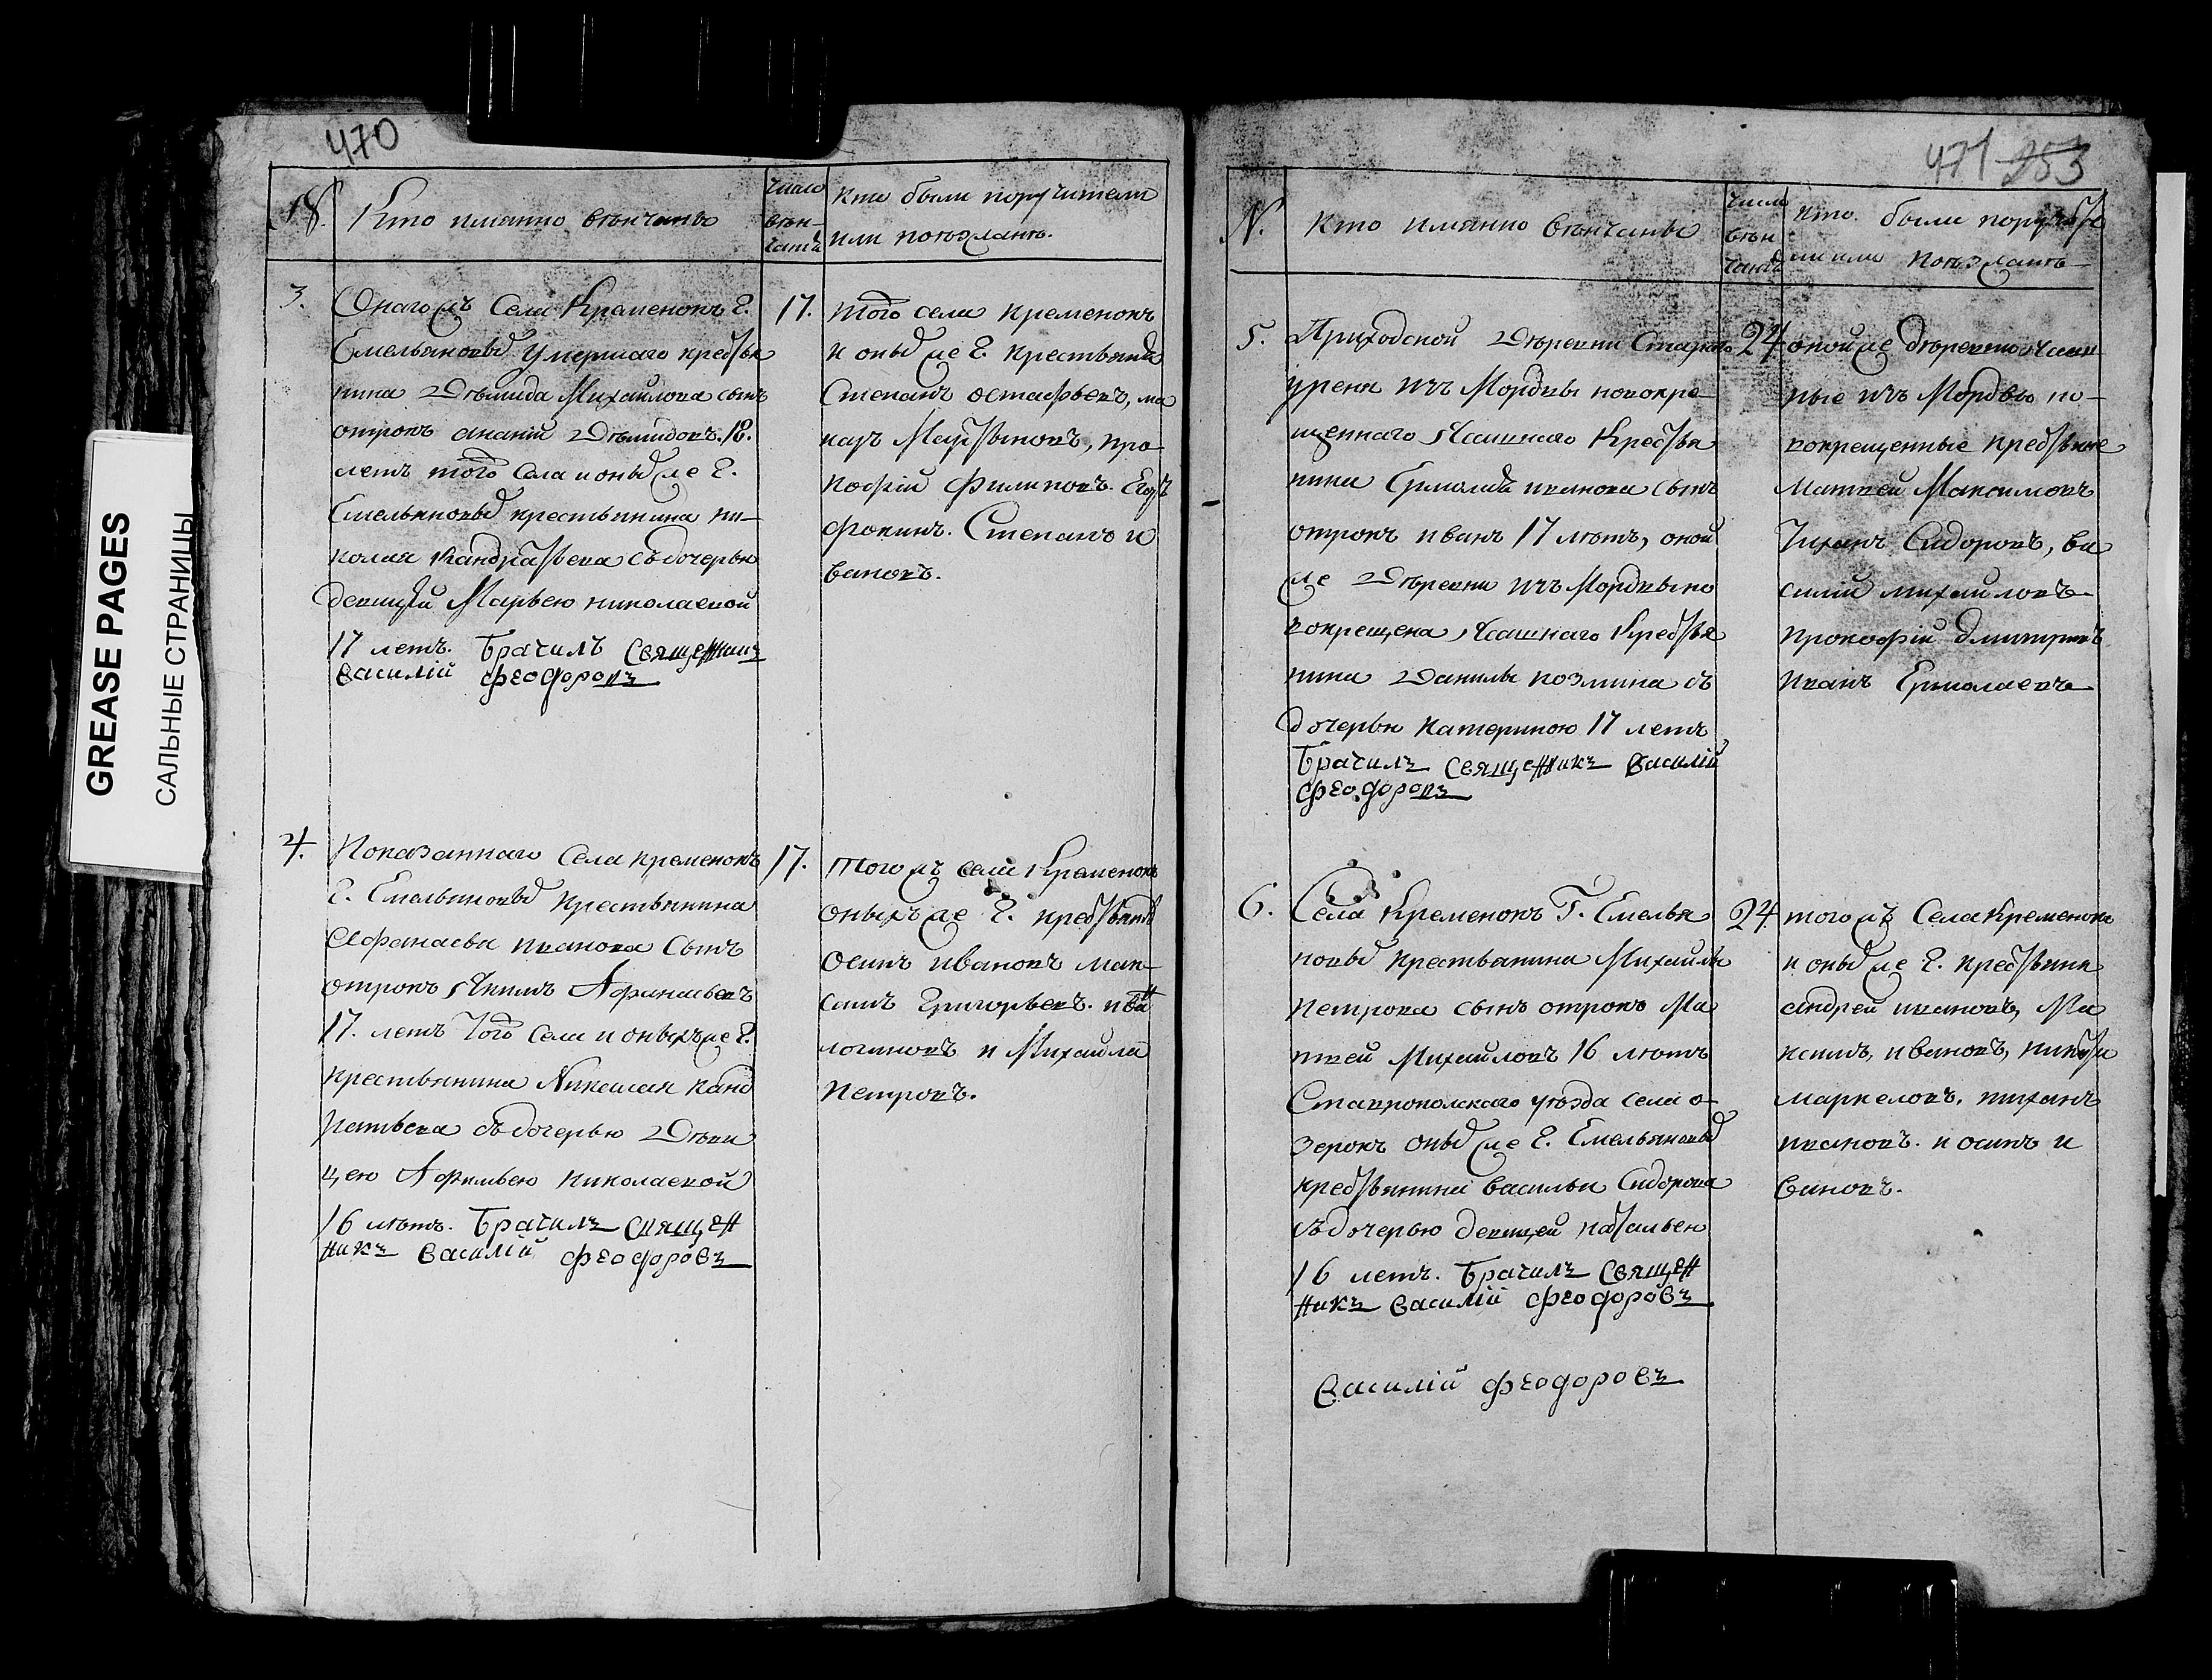 470
№.
Кто имянно венчаны
число
вѣн-
чаній
кто были поручители
или поѣзжанѣ.
3.
Онагожъ Села Кременокъ Г.
Емельяновыхъ умершаго крестья
нина Дѣмида Михайлова сынъ
отрокъ ананій Дѣмидовъ. 18.
летъ того Села и оныхже Г.
Емельяновыхъ крестьянина ни-
колая Кандратьева съ дочерью
девицей Марьею николаевой
17 летъ. Брачилъ Священникъ
Василій Феодоровъ
17.
того села кременокъ
и оныхже Г. крестьяня
Степанъ остафьевъ, ма
каръ Мартыновъ, про-
кофій филиповъ. Егоръ
фокинъ. Степанъ и
вановъ.
4.
Показаннаго Села кременокъ
Г. Емельяновыхъ крестьянина
Афанасья иванова сынъ
отрокъ Якимъ Афанасьевъ
17. летъ того Села и оныхъже Г.
крестьянина Николая канд
ратьева съ дочерью Дѣви
цею Афимьею николаевой
16 лѣтъ. Брачилъ Священ
никъ Василій Феодоровъ
17.
тогожъ села Кременокъ
оныхъже Г. крестьянѣ
Осипъ ивановъ мак-
симъ Григорьевъ. иванъ
логиновъ и Михайла
Петровъ.
GREASE PAGES
САЛЬНЫЕ СТРАНИЦЫ
471 253
N.
Кто имянно Вѣнчаны
числа
вѣн
чанія
кто были поручите
ли или поѣзжанѣ
5.
Приходской Дѣревни Стараго
урения изъ Мордвы новокре-
щеннаго Ясашнаго Крестья
нина Ермолая иванова сынъ
отрокъ иванъ 17 лѣтъ, оной
же Дѣревни изъ Мордвы но
вокрещена Ясашнаго Крестья
нина Данилы козмина съ
дочерью катериною 17 летъ
Брачилъ Священникъ Василій
Феодоровъ
24
оной же дѣревни Ясаш
ные изъ Мордвы но-
вокрещенные крестьяне
Матвей Максимовъ
Тиханъ Сидоровъ, ва
силій михайловъ
прокофій дмитриевъ
иванъ Ермолаевъ
6.
Села Кременокъ Г. Емелья
новыхъ крестьянина Михайлы
Петрова сынъ отрокъ Ма
твей Михайловъ 16 лѣтъ
Ставропольскаго уѣзда села о-
зерокъ оныхже Г. Емельяновыхъ
крестьянина Василья Сидорова
съ дочерью девицей натальею
16 летъ. Брачилъ Священ
никъ Василій Феодоровъ
24.
тогожъ Села Кременокъ
и оныхже Г. крестьяня
андрей ивановъ, Ма
ксимъ, ивановъ, никита
маркеловъ, тиханъ
ивановъ. и осипъ и
вановъ.
Василій Феодоровъ